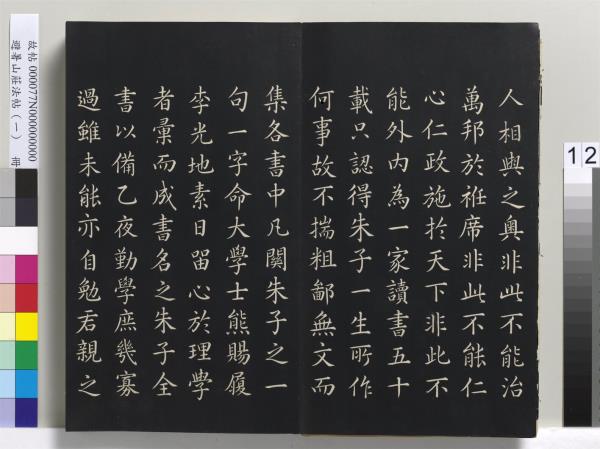 人相與之奧非此不能治
萬邦於袵席非此不能仁
心仁政施於天下非此不
能外内為一家讀書五十
載只認得朱子一生所作
何事故不揣粗鄙無文而
集各書中凡關朱子之一
句一字命大學士熊賜履
李光地素日留心於理學
者彙而成書名之朱子全
書以備乙夜勤學庶幾寡
過雖未能亦自勉君親之
故帖 000077N000000000
避暑山莊法帖（一） 冊
12